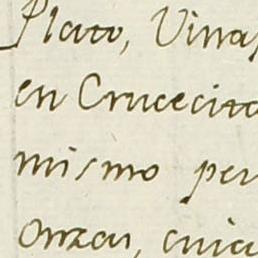 Plato, Vina
en Crucecita
mismo per
onzas, cuia